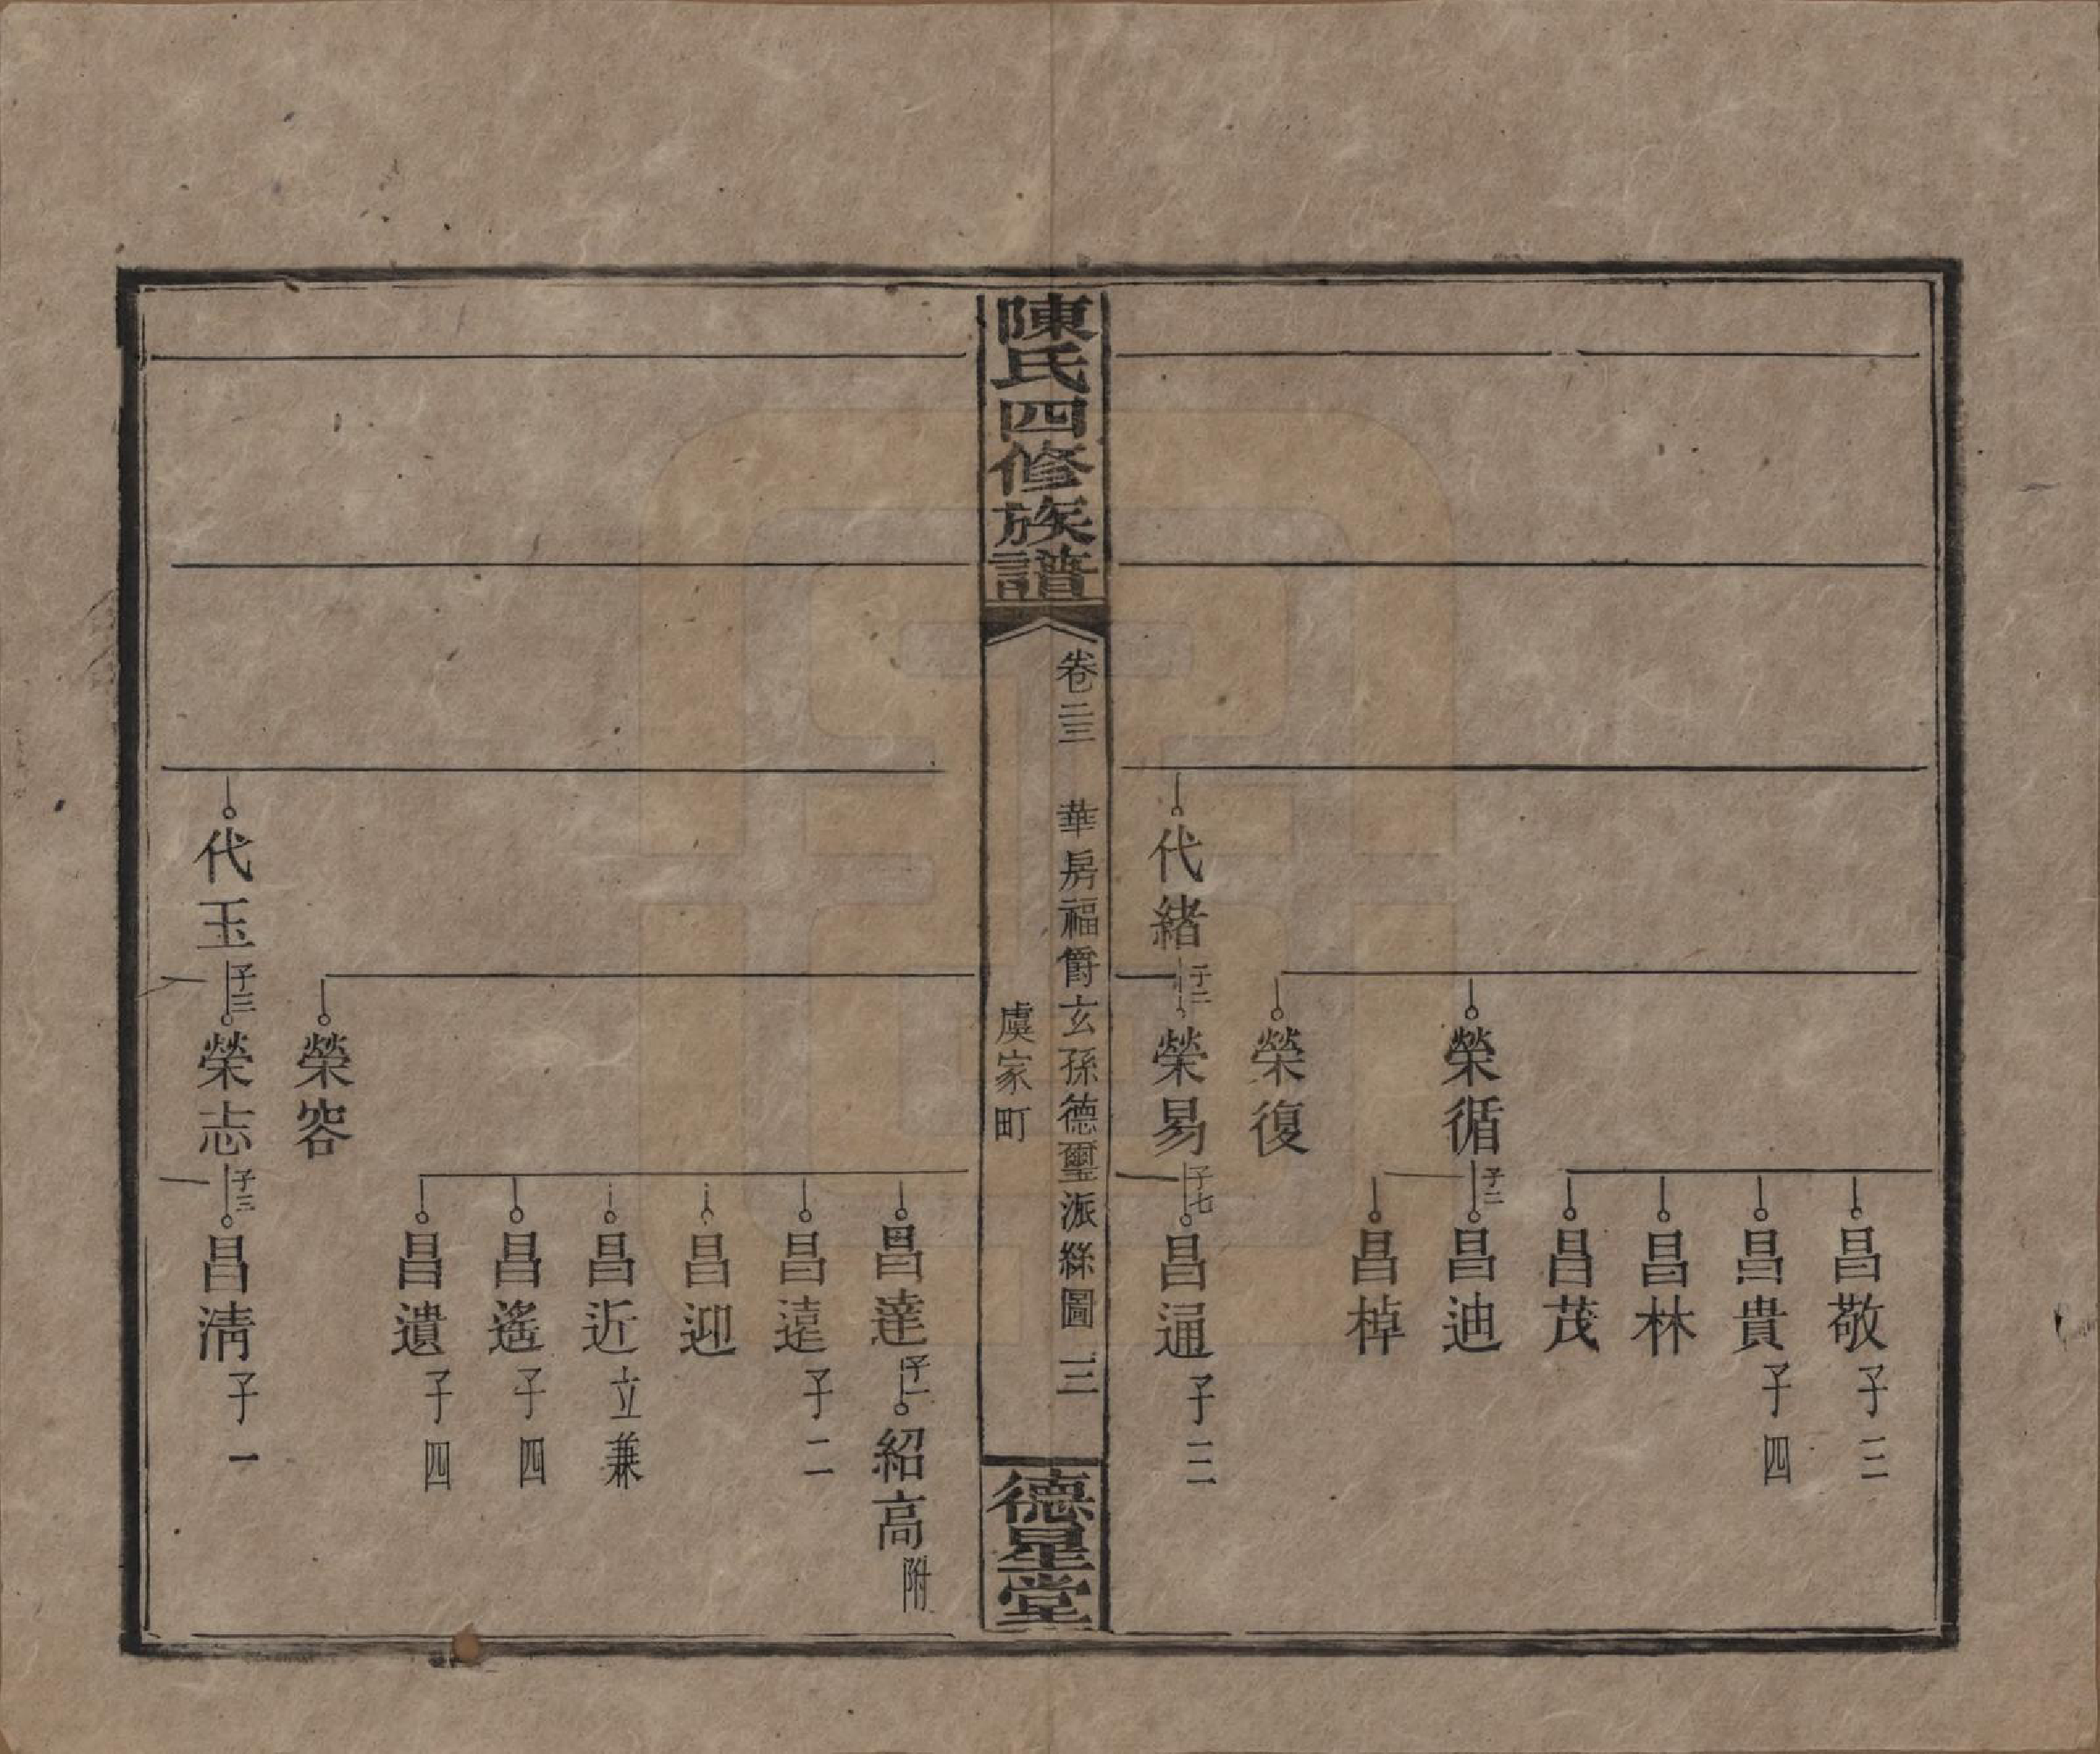 昌敬子三
昌貴子四
昌林
昌茂
榮循子二昌迪
昌棹
榮復
代緒子二榮易子七昌通子三
陳氏四修族譜
卷二三 華房福爵玄孫德璽派絲圖 三
虞家町
德星堂
昌達子一紹高附
昌遠子二
昌迎
昌近立兼
昌遙子四
昌遺子四
榮容
代玉子三榮志子三昌清子一